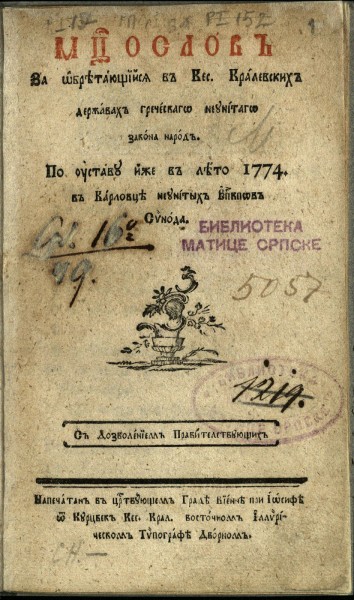 РІ 152
МЦ҃ОСЛОВЪ
За ѡ҆брѣта́ющїйсѧ въ Кес. Кра́левскихъ
держа́вахъ гре́ческагѡ неуни́тагѡ
зако́на наро́дъ.
По ѹ҆ста́ву и҆́же въ лѣ́то 1774.
въ Ка́рловцѣ неуни́тыхъ Е҆п҇кпѡвъ
Сѵно́да.
16
99.
БИБЛИОТЕКА
МАТИЦЕ СРПСКЕ
5057
1219.
Съ Дозволе́нїемъ Прави́телствующихъ
Напеча́танъ въ цр҇твующемъ Гра́дѣ Вїе́ннѣ при І҆ѡ́сифѣ
ѿ Ку́рцбекъ Кес. Крал. восто́чномъ І҆ллѷрі́-
ческомъ Тѷпогра́фѣ Дво́рномъ.